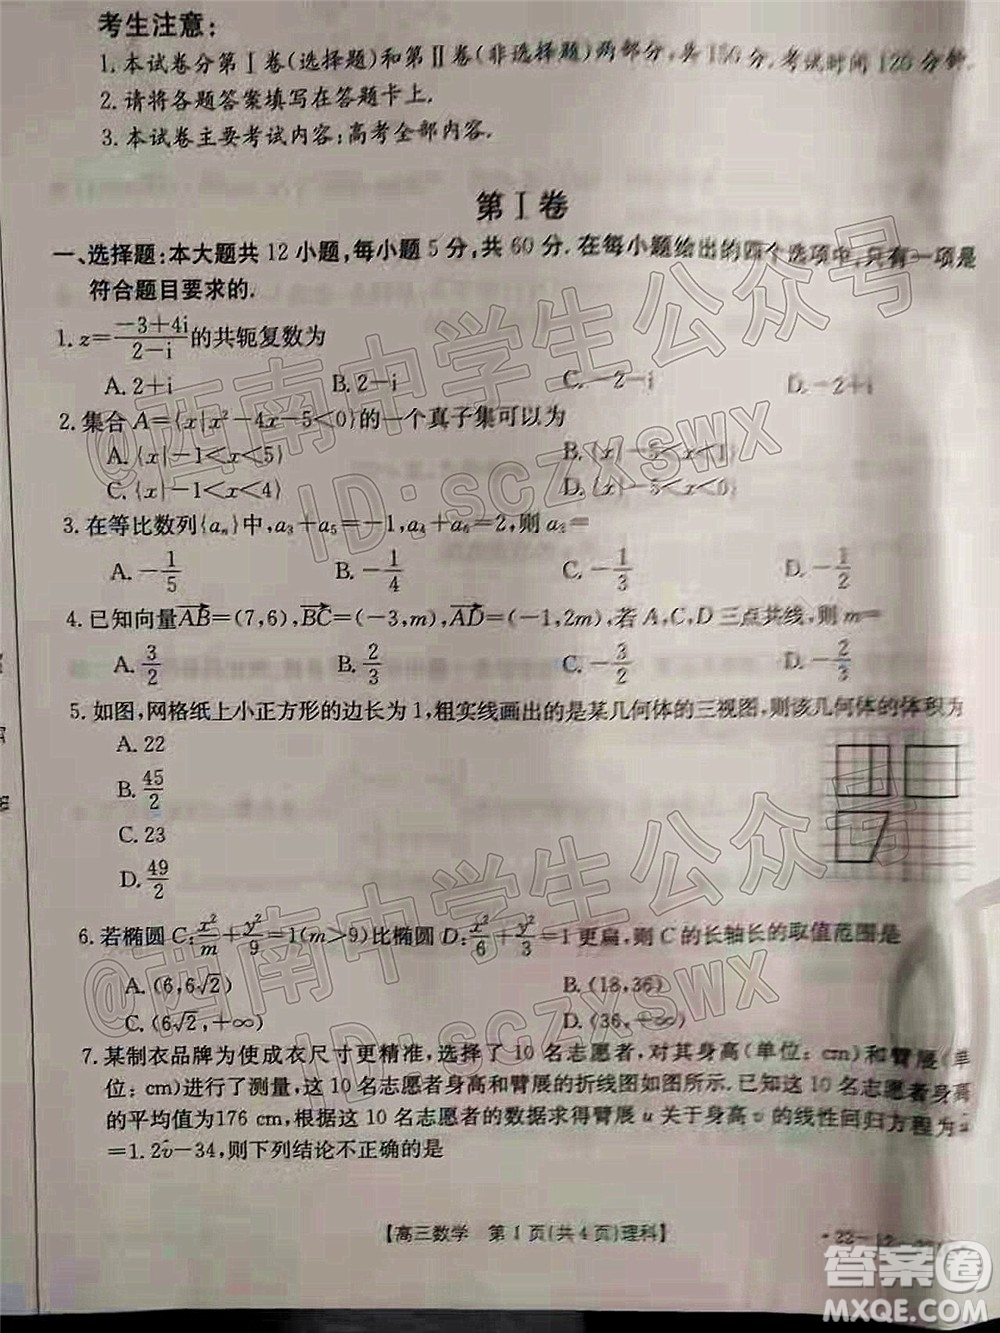 考生注意:
1.本试卷分第Ⅰ卷(选择题)和第Ⅱ卷(非选择题)两部分,共150分.考试时间120分钟.
2.请将各题答案填写在答题卡上.
3.本试卷主要考试内容:高考全部内容.
第Ⅰ卷
一、选择题:本大题共12小题,每小题5分,共60分.在每小题给出的四个选项中,只有一项是
符合题目要求的.
1. z=(-3+4i)/(2-i)的共轭复数为
A. 2+i B. 2-i C. -2-i D. -2+i
2.集合A={x|x²-4x-5<0}的一个真子集可以为
A. {x|-1<x<5} B. {x|-5<x<1}
C. {x|-1<x<4} D. {x|-5<x<0}
3.在等比数列{aₙ}中,a₃+a₅=-1,a₄+a₆=2,则a₂=
A. -1/5 B. -1/4 C. -1/3 D. -1/2
4.已知向量AB=(7,6),BC=(-3,m),AD=(-1,2m),若A,C,D三点共线,则m=
A. 3/2 B. 2/3 C. -3/2 D. -2/3
5.如图,网格纸上小正方形的边长为1,粗实线画出的是某几何体的三视图,则该几何体的体积为
A. 22
B. 45/2
C. 23
D. 49/2
6.若椭圆C:x²/m+y²/9=1(m>9)比椭圆D:x²/6+y²/3=1更扁,则C的长轴长的取值范围是
A. (6,6√2) B. (18,36)
C. (6√2,+∞) D. (36,+∞)
7.某制衣品牌为使成衣尺寸更精准,选择了10名志愿者,对其身高(单位:cm)和臂展(单
位:cm)进行了测量,这10名志愿者身高和臂展的折线图如图所示.已知这10名志愿者身高
的平均值为176 cm,根据这10名志愿者的数据求得臂展u关于身高v的线性回归方程为û
=1.2v-34,则下列结论不正确的是
【高三数学 第1页(共4页)理科】
·22-12-
@西南中学生公众号
ID:SCZXSWX
@西南中学生公众号
ID:SCZXSWX
答案圈
MXQE.COM